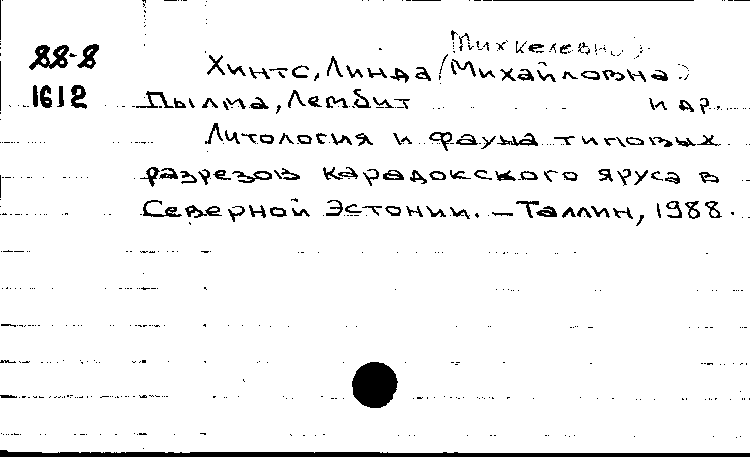 (Михкелевна)
88-8 Хинтс, Линда (Михайловна)
1612 Пылма, Лембит и др.
Литология и фауна типовых
разрезов карадокского яруса в
Северной Эстонии. – Таллин, 1988.